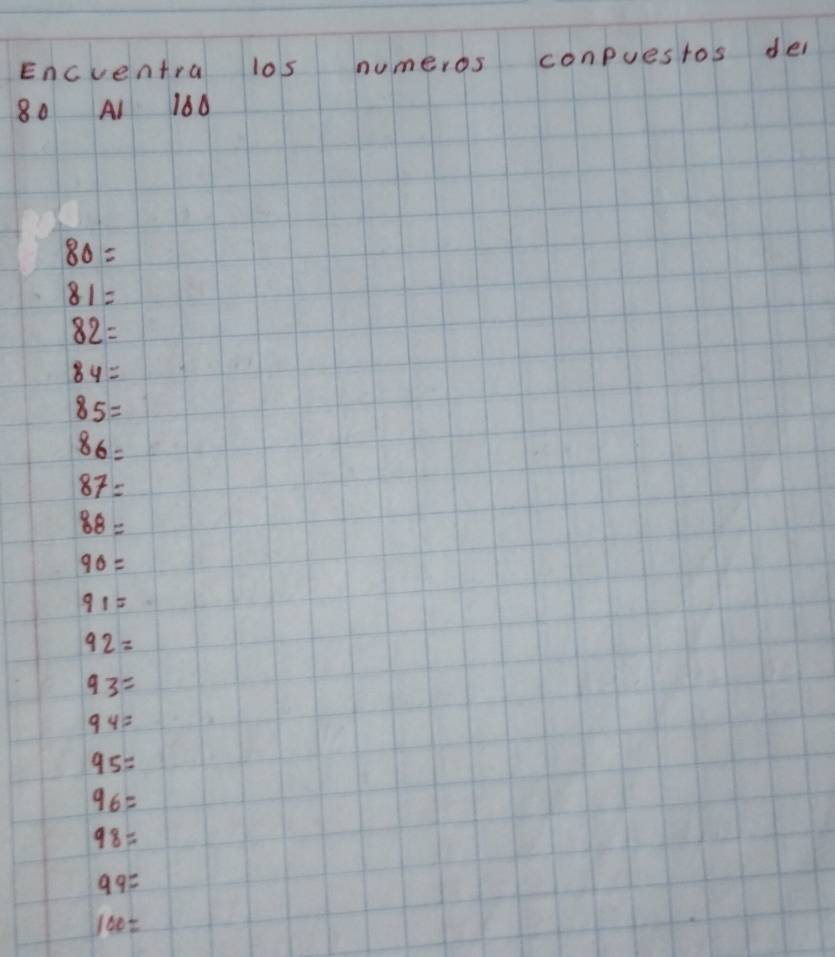 Encuentra los numeros conpuestos del
80 Al 100
80=
81=
82=
84=
85=
86=
87=
88=
90=
91=
92=
93=
94=
95=
96=
98=
99=
100=